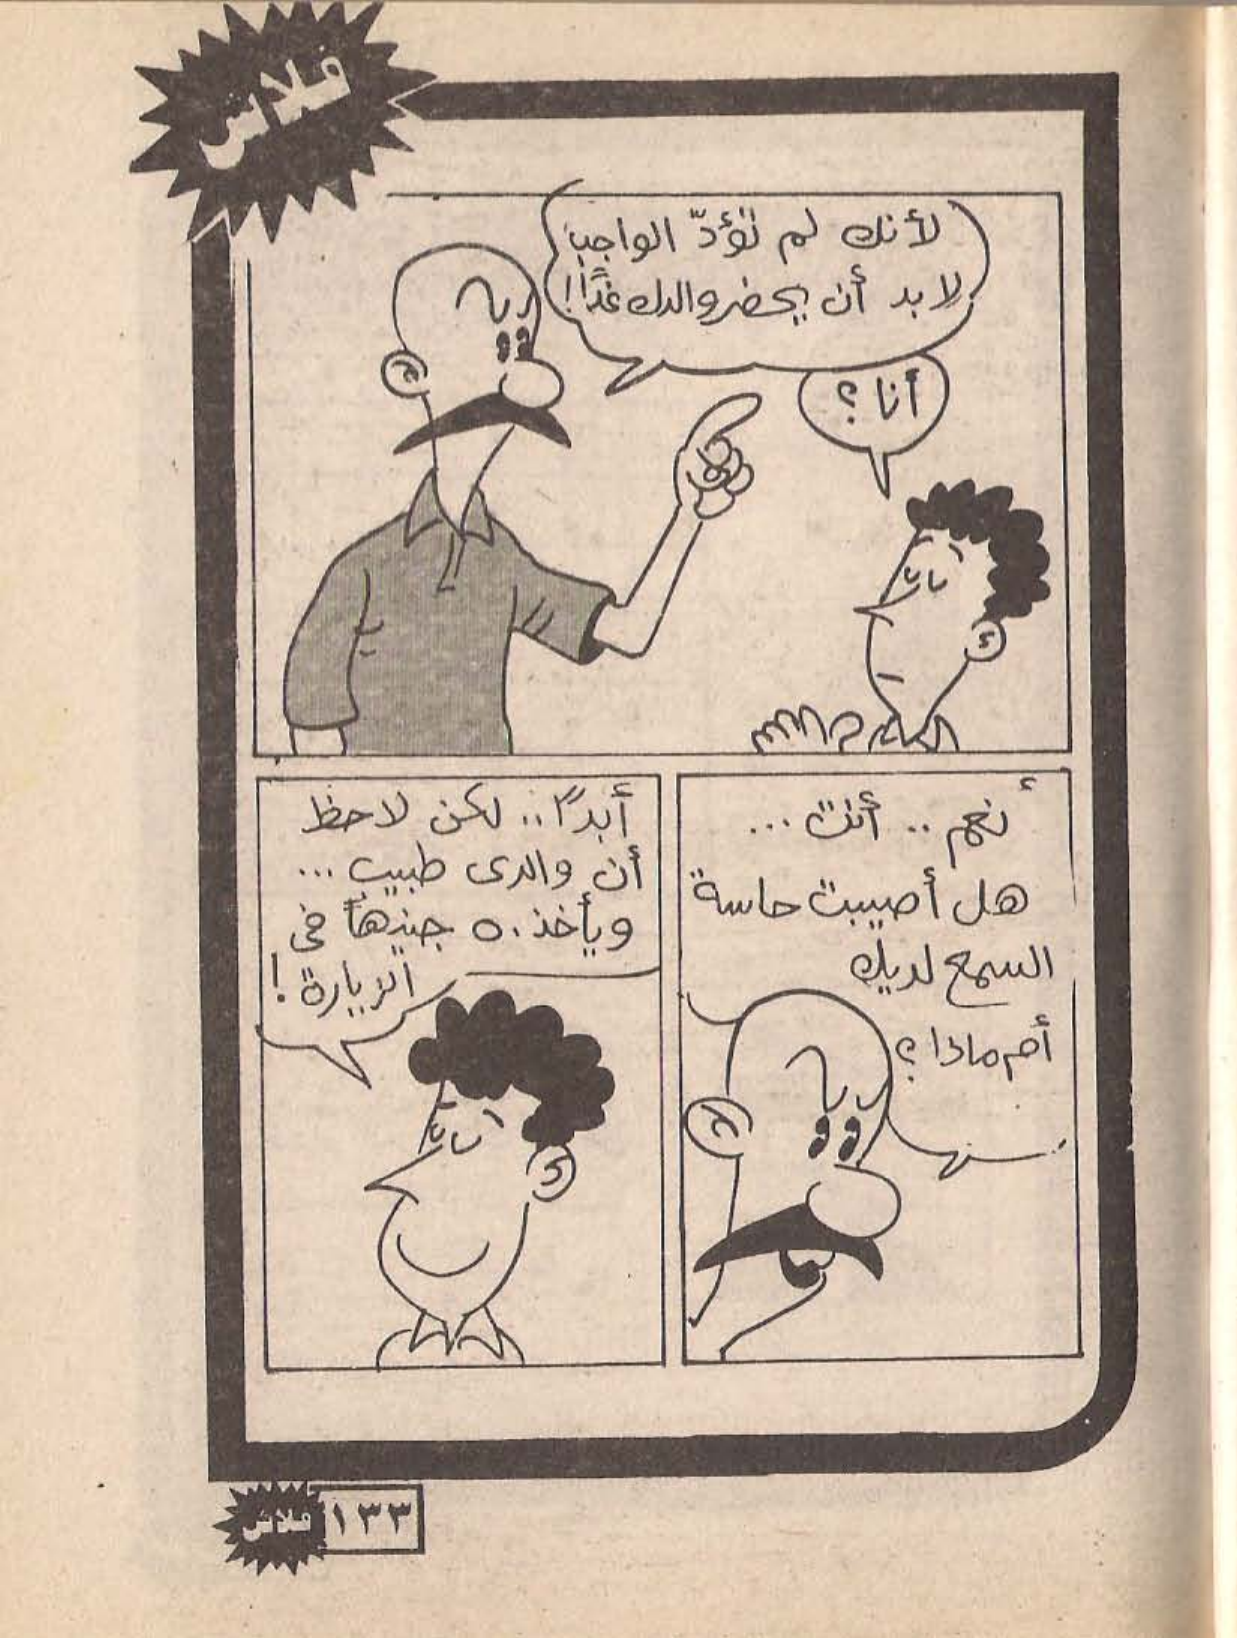 فلاش
لأنك لم تؤدّ الواجب
لا بد أن يحضر والدك غدًا!
أنا؟
نعم .. أنت ...
هل أصيبت حاسة
السمع لديك
أم ماذا؟
أبدًا .. لكن لاحظ
أن والدى طبيب ...
ويأخذ ٥٠ جنيهاً فى
الزيارة!
فلاش ١٣٣